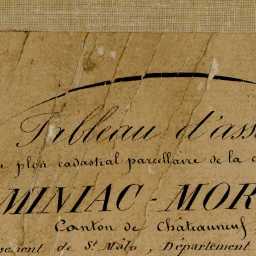 Tableau d'ass
plan cadastral parcellaire de la c
MINIAC-MOR
Canton de Châteauneuf
ement de St Malo, Département